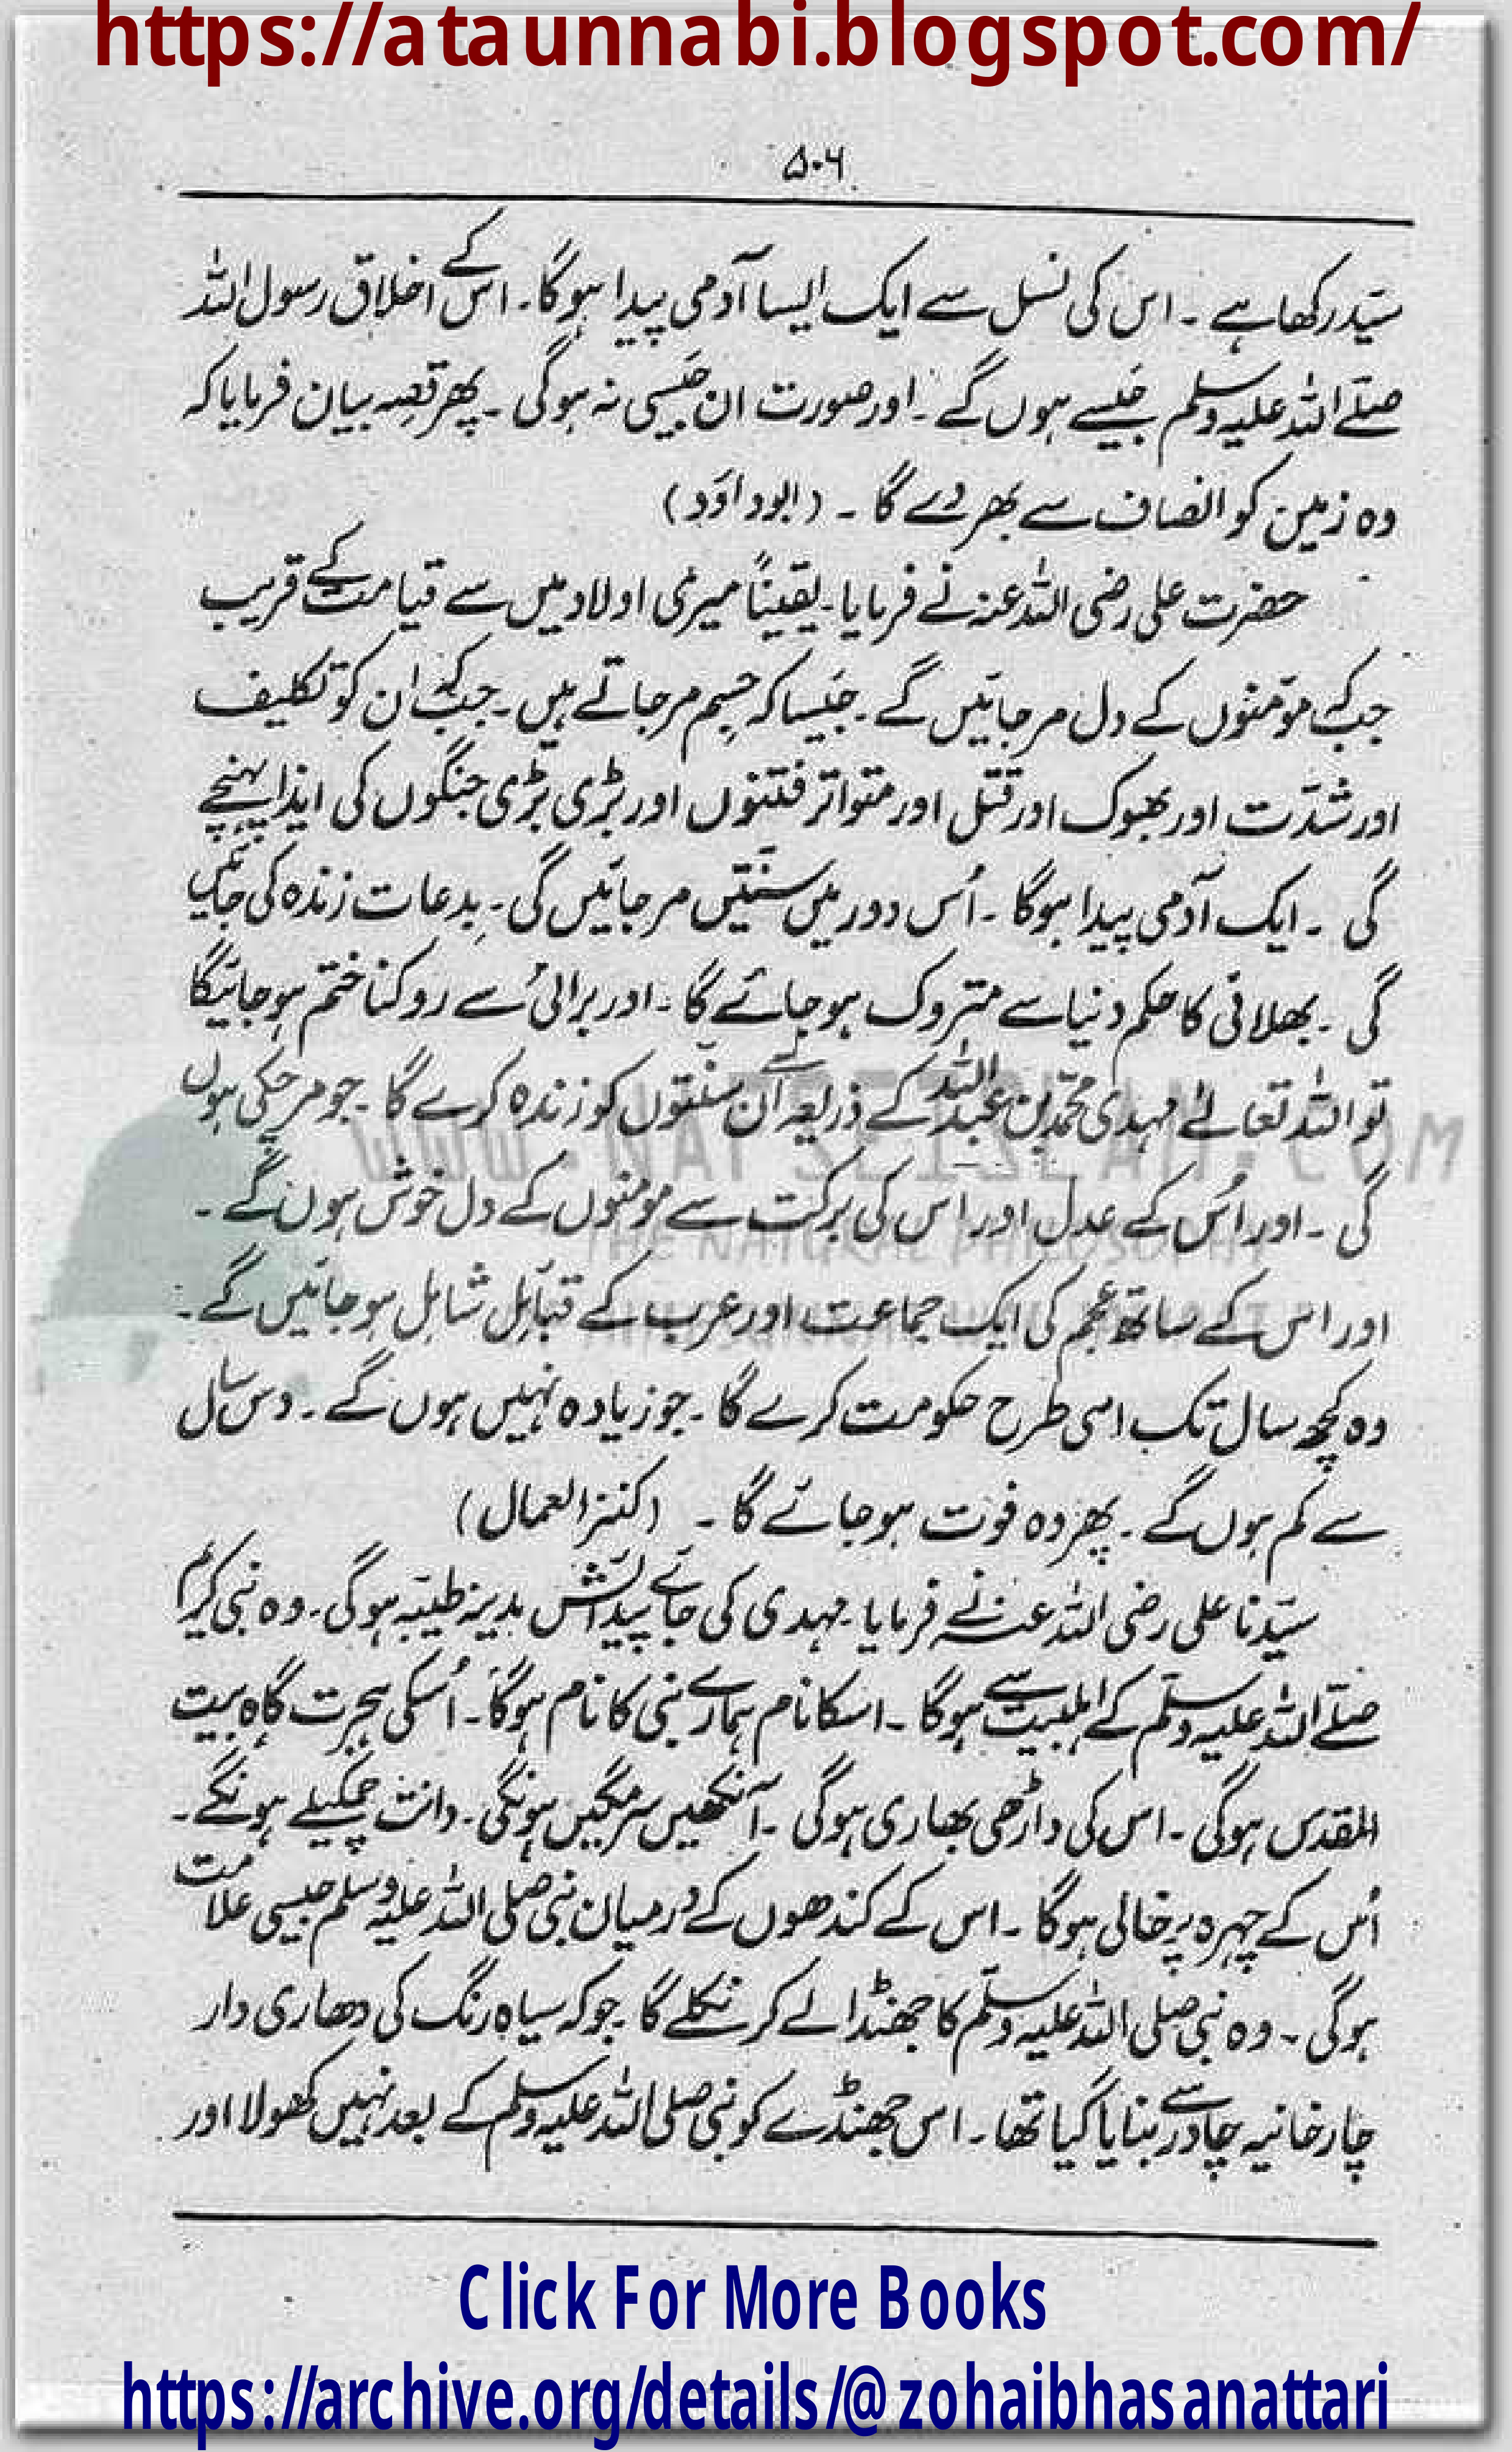 https://ataunnabi.blogspot.com/
۵۰۶
سیّد رکھا ہے ۔ اس کی نسل سے ایک ایسا آدمی پیدا ہوگا۔ اس کے اخلاق رسول اللہ
صلّے اللہ علیہ وسلم جیسے ہوں گے ۔ اور صورت ان جیسی نہ ہوگی ۔ پھر قصہ بیان فرمایا کہ
وہ زمین کو انصاف سے بھر دے گا ۔ (ابوداؤد)
حضرت علی رضی اللہ عنہ نے فرمایا۔ یقیناً میری اولاد میں سے قیامت کے قریب
جبکہ مؤمنوں کے دل مر جائیں گے ۔ جیسا کہ جسم مر جاتے ہیں ۔ جبکہ ان کو تکلیف
اور شدّت اور بھوک اور قتل اور متواتر فتنوں اور بڑی بڑی جنگوں کی ایذا پہنچے
گی ۔ ایک آدمی پیدا ہوگا ۔ اُس دور میں سنّتیں مر جائیں گی ۔ بدعات زندہ کی جائیں
گی ۔ بھلائی کا حکم دنیا سے متروک ہو جائے گا ۔ اور برائی سے روکنا ختم ہو جائیگا
تو اللہ تعالےٰ مہدی محمّد بن عبداللہ کے ذریعہ اُن سنّتوں کو زندہ کرے گا ۔ جو مر چکی ہوں
گی ۔ اور اُس کے عدل اور اس کی برکت سے مومنوں کے دل خوش ہوں گے ۔
اور اس کے ساتھ عجم کی ایک جماعت اور عرب کے قبائل شامل ہو جائیں گے ۔
وہ کچھ سال تک اسی طرح حکومت کرے گا ۔ جو زیادہ نہیں ہوں گے ۔ دس سال
سے کم ہوں گے ۔ پھر وہ فوت ہو جائے گا ۔ (کنز العمال)
سیّدنا علی رضی اللہ عنہ نے فرمایا مہدی کی جائے پیدائش مدینہ طیبّہ ہوگی ۔ وہ نبی کریم
صلّے اللہ علیہ وسلّم کے اہلبیت سے ہوگا ۔ اسکا نام ہمارے نبی کا نام ہوگا ۔ اُسکی ہجرت گاہ بیت
المقدس ہوگی ۔ اس کی داڑھی بھاری ہوگی ۔ آنکھیں سرمگیں ہونگی ۔ دانت چمکیلے ہونگے ۔
اُس کے چہرہ پر خالی ہوگا ۔ اس کے کندھوں کے درمیان نبی صلی اللہ علیہ وسلم جیسی علامت
ہوگی ۔ وہ نبی صلی اللہ علیہ وسلّم کا جھنڈا لے کر نکلے گا ۔ جو کہ سیاہ رنگ کی دھاری دار
چار خانیہ چادر سے بنایا گیا تھا ۔ اس جھنڈے کو نبی صلی اللہ علیہ وسلم کے بعد نہیں کھولا اور
WWW.NAFSEISLAM.COM
THE NATURAL PHILOSOPHY
Click For More Books
https://archive.org/details/@zohaibhasanattari